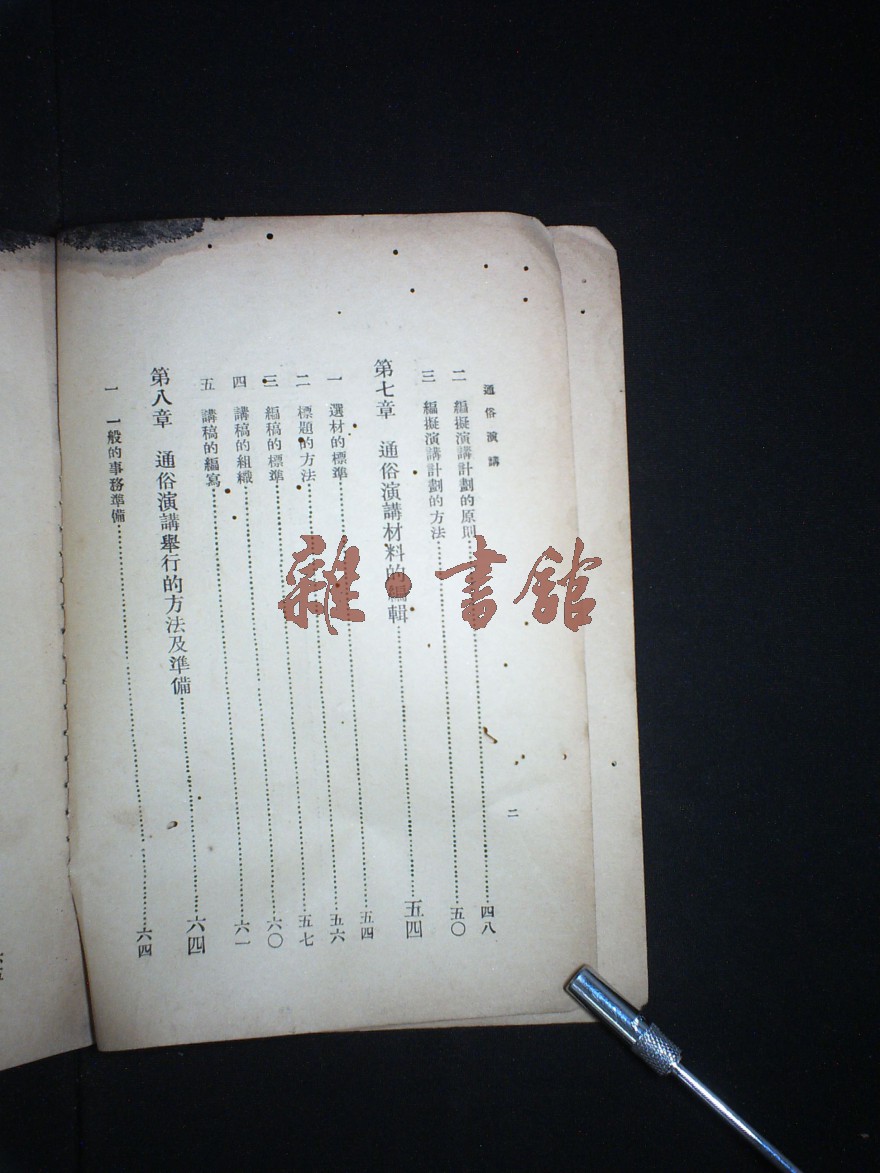 通俗演講
二
二 編擬演講計劃的原則 四八
三 編擬演講計劃的方法 五〇
第七章 通俗演講材料的編輯 五四
一 選材的標準 五四
二 標題的方法 五六
三 編稿的標準 五七
四 講稿的組織 六〇
五 講稿的編寫 六一
第八章 通俗演講舉行的方法及準備 六四
一 一般的事務準備 六四
雜·書館